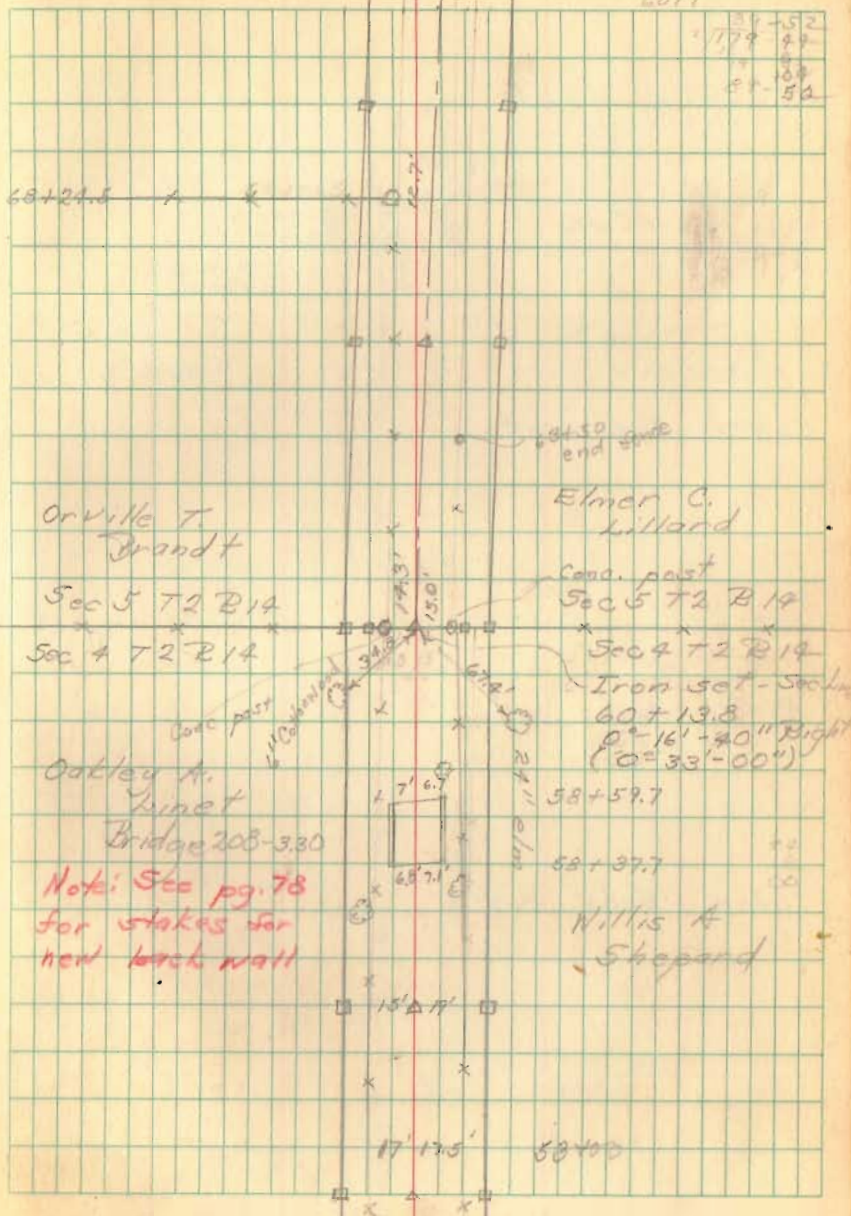 179-44
68+24.5
12.7'
63+50
end fence
Orville T.
Brandt
Elmer C.
Lillard
14.3'
15.0'
Conc. post
Sec 5 T2 R 14
Sec 5 T2 R 14
Sec 4 T2 R 14
Sec 4 T2 R 14
34.3
67.4'
Iron set - Sec Ln
60+13.8
0°-16'-40" Right
(0°33'-00")
Conc post
6" Cottonwood
24" elm
Oakley A.
Linet
Bridge 208-3.30
7' 6.7
58+59.7
6.8' 7.1'
58+37.7
Note: See pg. 78
for stakes for
new back wall
Willis A
Shepard
15' 17'
17' 17.5'